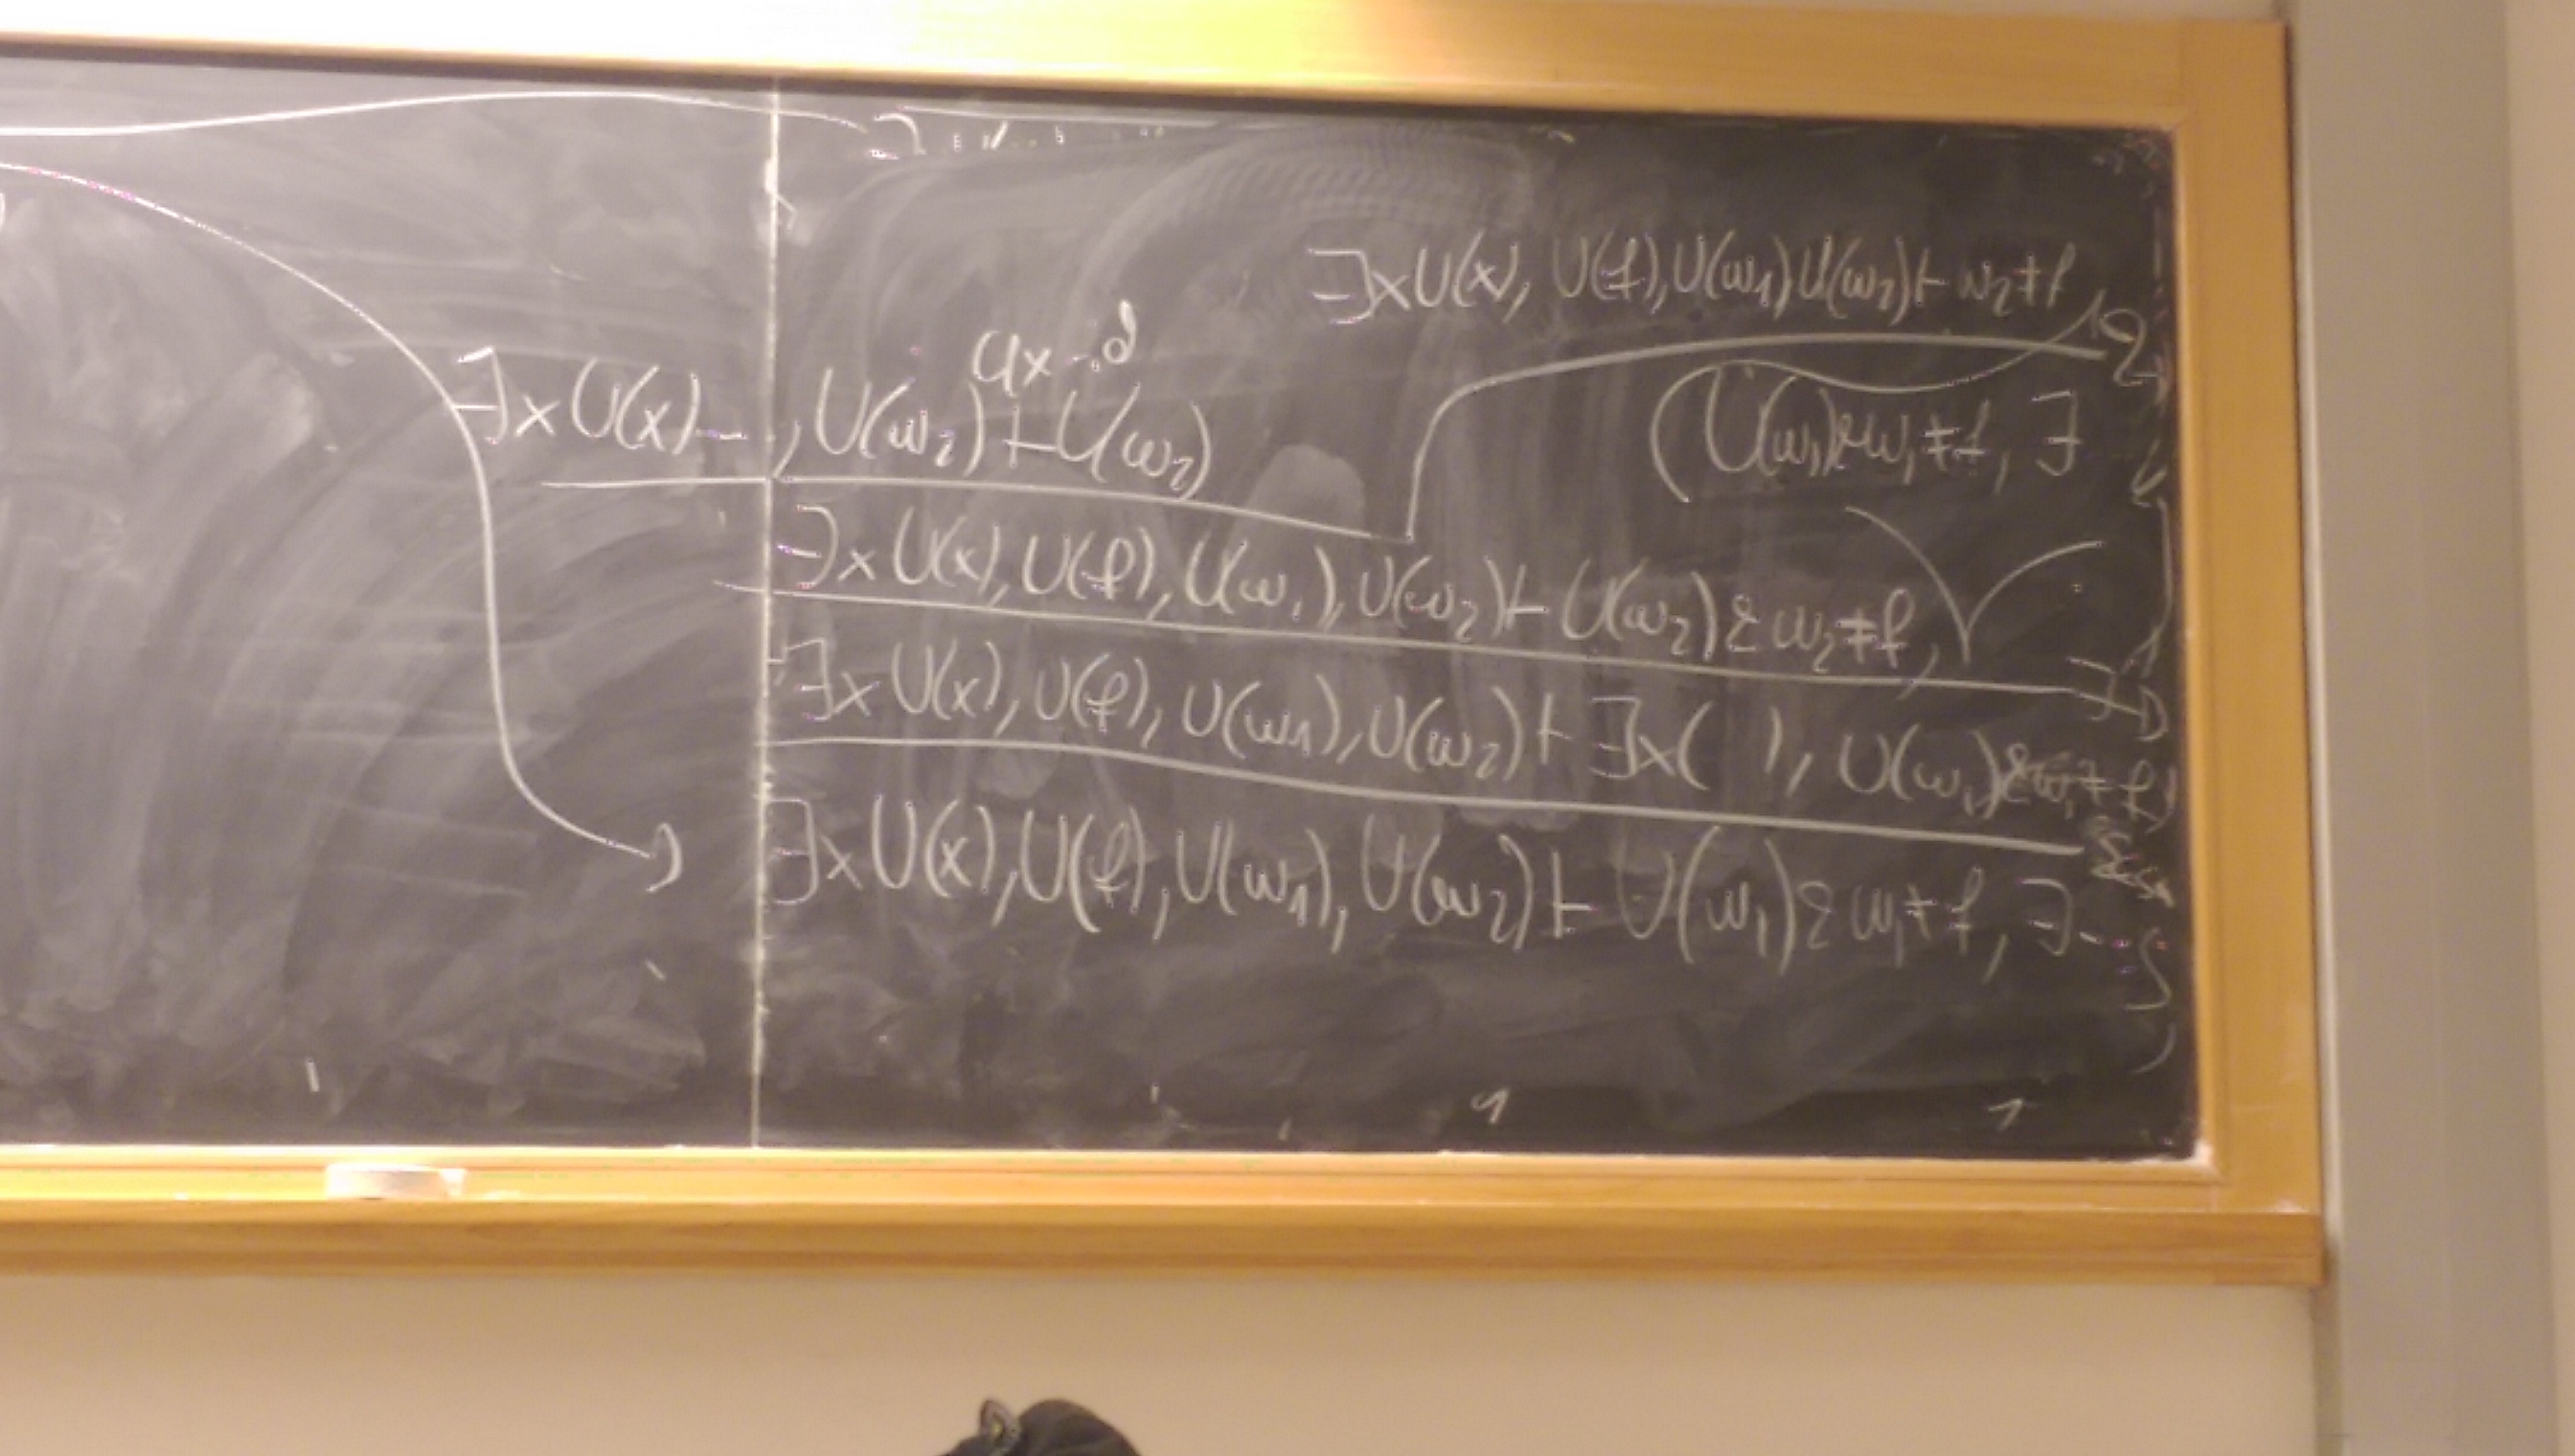 ∃x U(x), U(f), U(w₁) U(w₂) ⊢ w₂ ≠ f
ax-id
∃x U(x) – , U(w₂) ⊢ U(w₂)
(U(w₁) & w₁ ≠ f, ∃
∃x U(x), U(f), U(w₁), U(w₂) ⊢ U(w₂) & w₂ ≠ f,
∃x U(x), U(f), U(w₁), U(w₂) ⊢ ∃x( ), U(w₁) & w₁ ≠ f
∃x U(x), U(f), U(w₁), U(w₂) ⊢ U(w₁) & w₁ ≠ f, ∃-